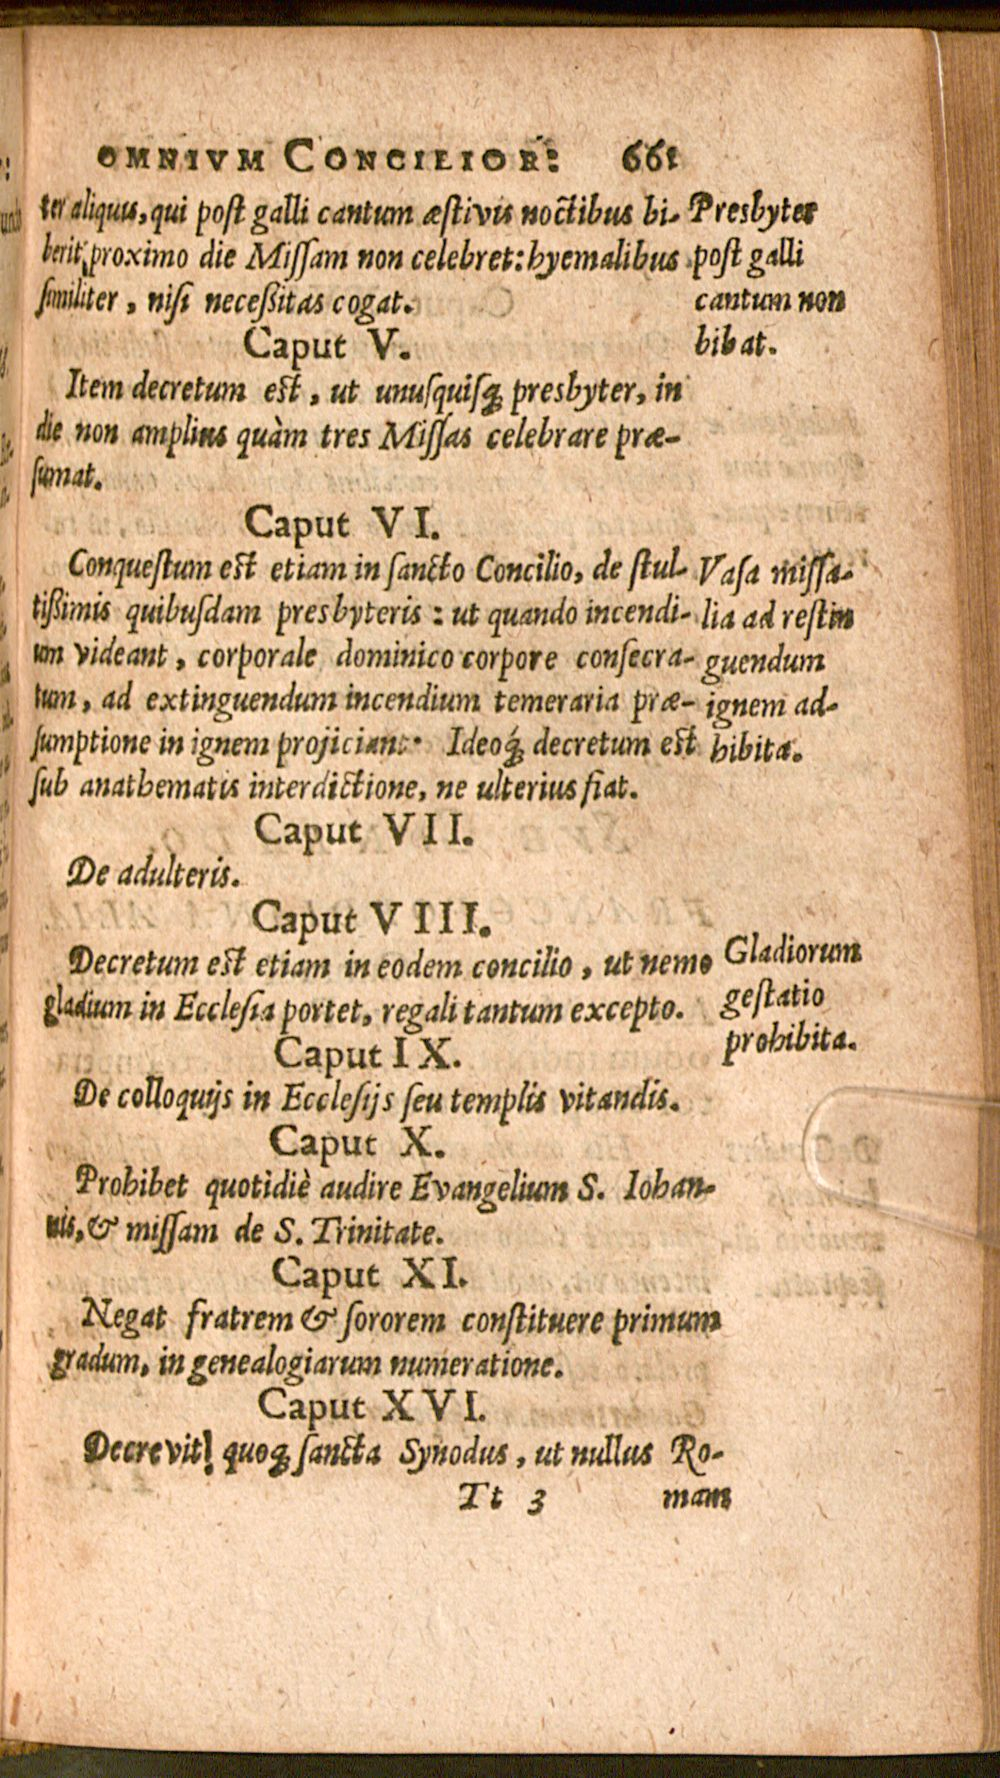 OMNIVM CONCILIOR: 661
ter aliquis, qui post galli cantum æstivis noctibus bi-
berit, proximo die Missam non celebret: hyemalibus
similiter, nisi necessitas cogat.
Presbyter
post galli
cantum non
bibat.
Caput V.
Item decretum est, ut unusquisq; presbyter, in
die non amplius quàm tres Missas celebrare præ-
sumat.
Caput VI.
Conquestum est etiam in sancto Concilio, de stul-
tissimis quibusdam presbyteris: ut quando incendi-
um videant, corporale dominico corpore consecra-
tum, ad extinguendum incendium temeraria præ-
sumptione in ignem projiciant. Ideoq́; decretum est
sub anathematis interdictione, ne ulterius fiat.
Vasa missa-
lia ad restin
guendum
ignem ad-
hibita.
Caput VII.
De adulteris.
Caput VIII.
Decretum est etiam in eodem concilio, ut nemo
gladium in Ecclesia portet, regali tantum excepto.
Gladiorum
gestatio
prohibita.
Caput IX.
De colloquijs in Ecclesijs seu templis vitandis.
Caput X.
Prohibet quotidiè audire Evangelium S. Iohan-
nis, & missam de S. Trinitate.
Caput XI.
Negat fratrem & sororem constituere primum
gradum, in genealogiarum numeratione.
Caput XVI.
Decrevit quoq; sancta Synodus, ut nullus Ro-
Tt 3 mam